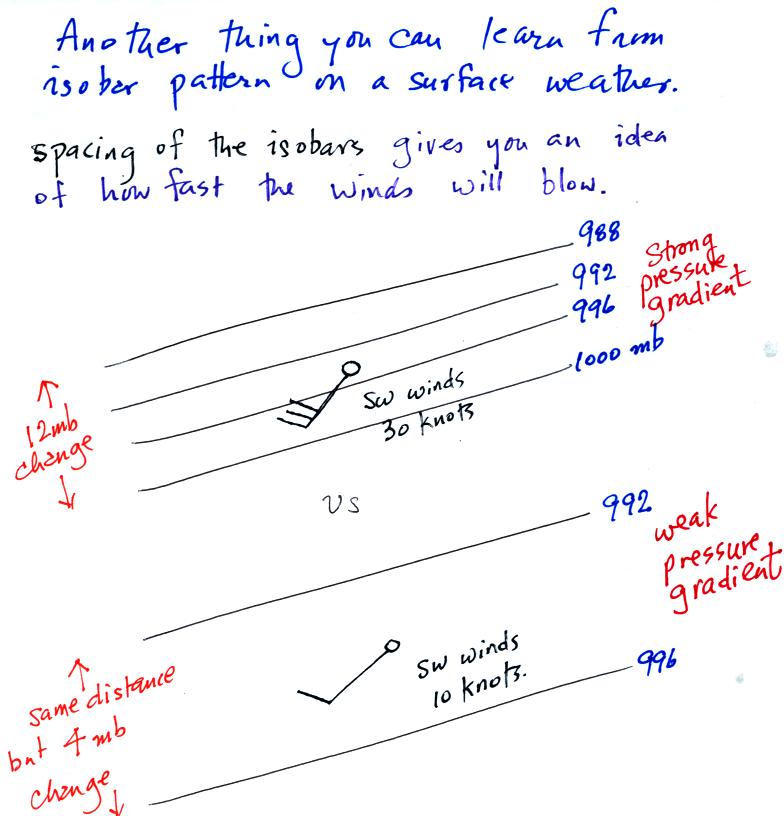 Another thing you can learn from
isobar pattern on a surface weather.
spacing of the isobars gives you an idea
of how fast the winds will blow.
988
992
996
1000 mb
Strong
pressure
gradient
12mb
change
SW winds
30 knots
VS
992
996
weak
pressure
gradient
SW winds
10 knots.
same distance
but 4 mb
change